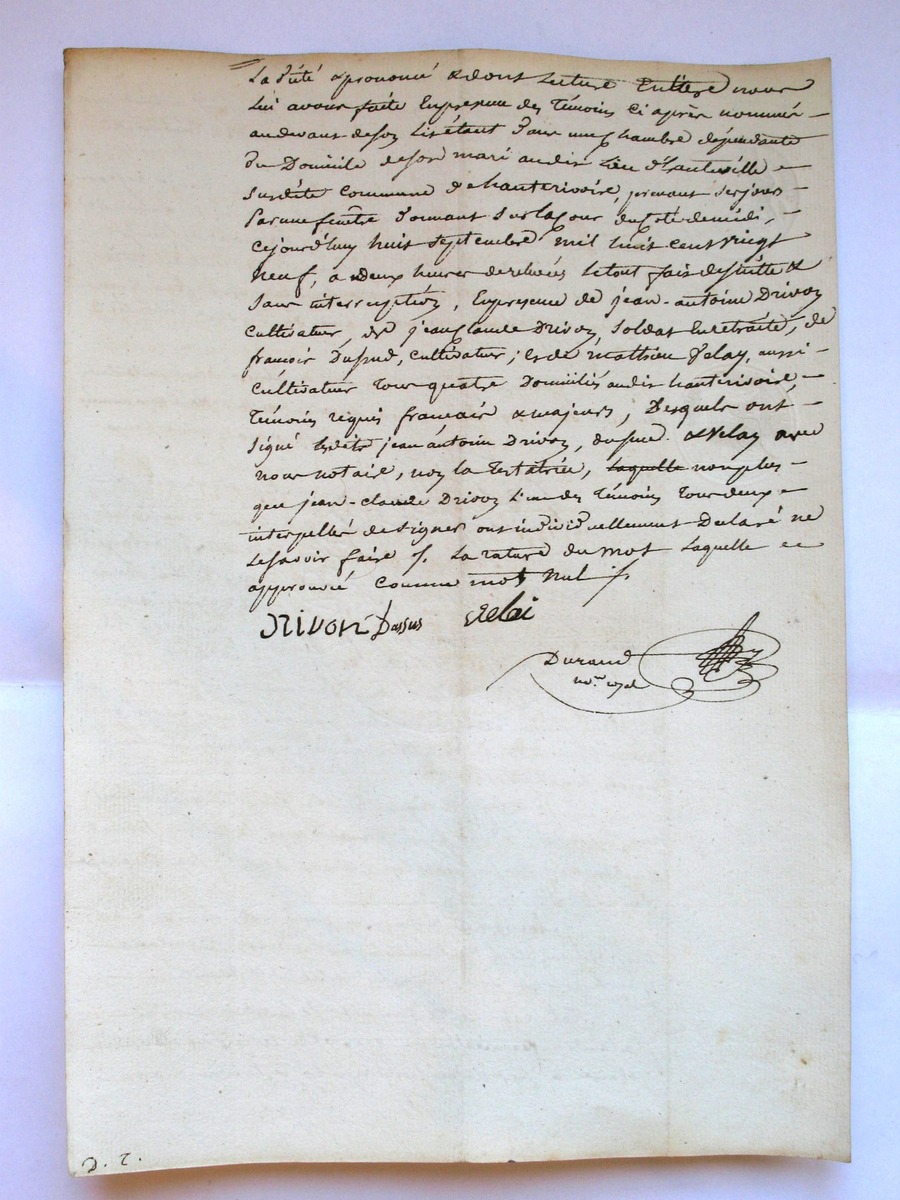 La dicté & prononcé & dont Lecture Entière nous
Lui avons faite En presence des Témoins ci après nommés –
au devant de son Lit étant dans une chambre dépendante
du Domicile de son mari au dit Lieu d'hauteville –
susdite commune de hauterivoire, prenant ses jours –
Par une fenêtre donnant sur la cour du côté de midi, –
Cejourd'huy huit septembre mil huit cent vingt
neuf, à Deux heures de relevées Le tout fait de suitte &
sans interruption, En presence de jean-antoine Drivon
cultivateur, de jean Claude Drivon, soldat En retraite, de
françois Dussud, cultivateur, & de mathieu Velay, aussi –
cultivateur Tous quatre Domiciliés au dit hauterivoire, –
Témoins réquis français & majeurs, Desquels ont –
signé Lesdits jean antoine Drivon, dussud & Velay avec
nous notaire, non la Testatrice, laquelle non plus –
que jean-claude Drivon L'un des Témoins Tous deux –
interpellés de signer ont individuellement Declaré ne
Le savoir faire /. La rature du mot Laquelle
approuvée comme mot nul /.
Drivon Dussus Velai
Durand
D. T.